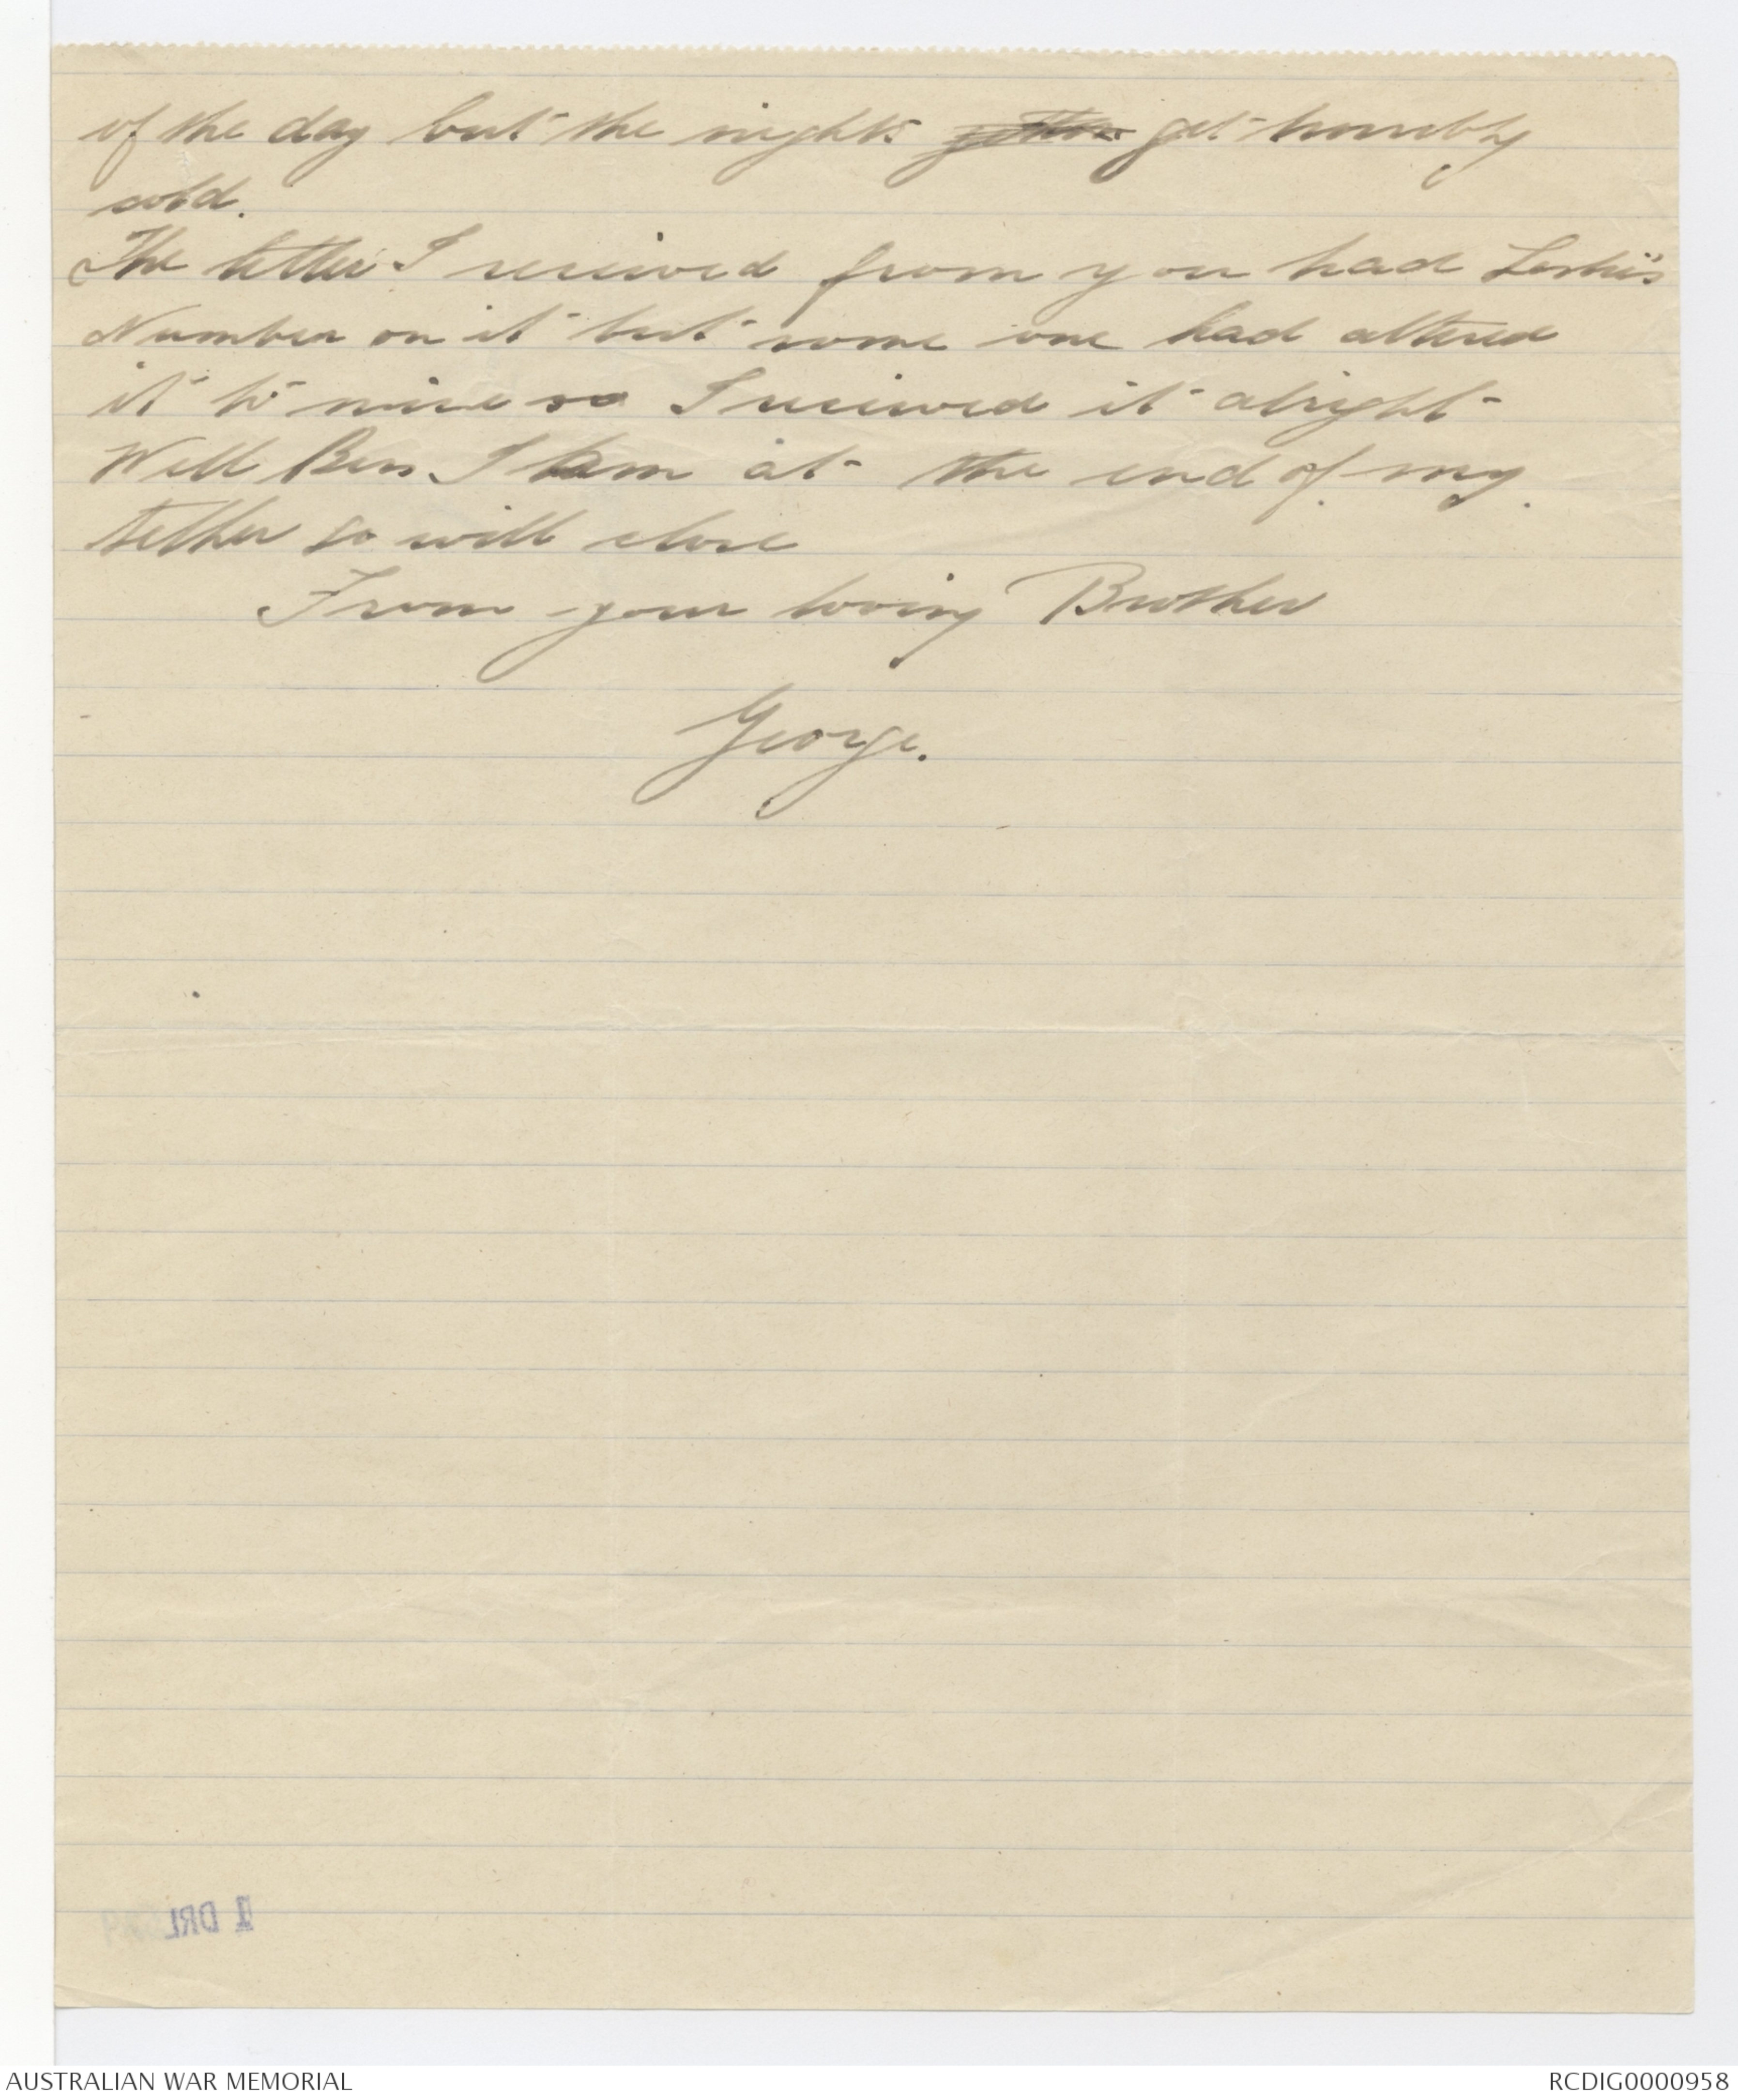 of the day but the nights get horribly
cold.
The letter I received from you had Leslie's
Number on it but some one had altered
it to mine so I received it alright
Well Bess I am at the end of my
tether so will close
From your loving Brother
George.
1 DRL
AUSTRALIAN WAR MEMORIAL
RCDIG0000958